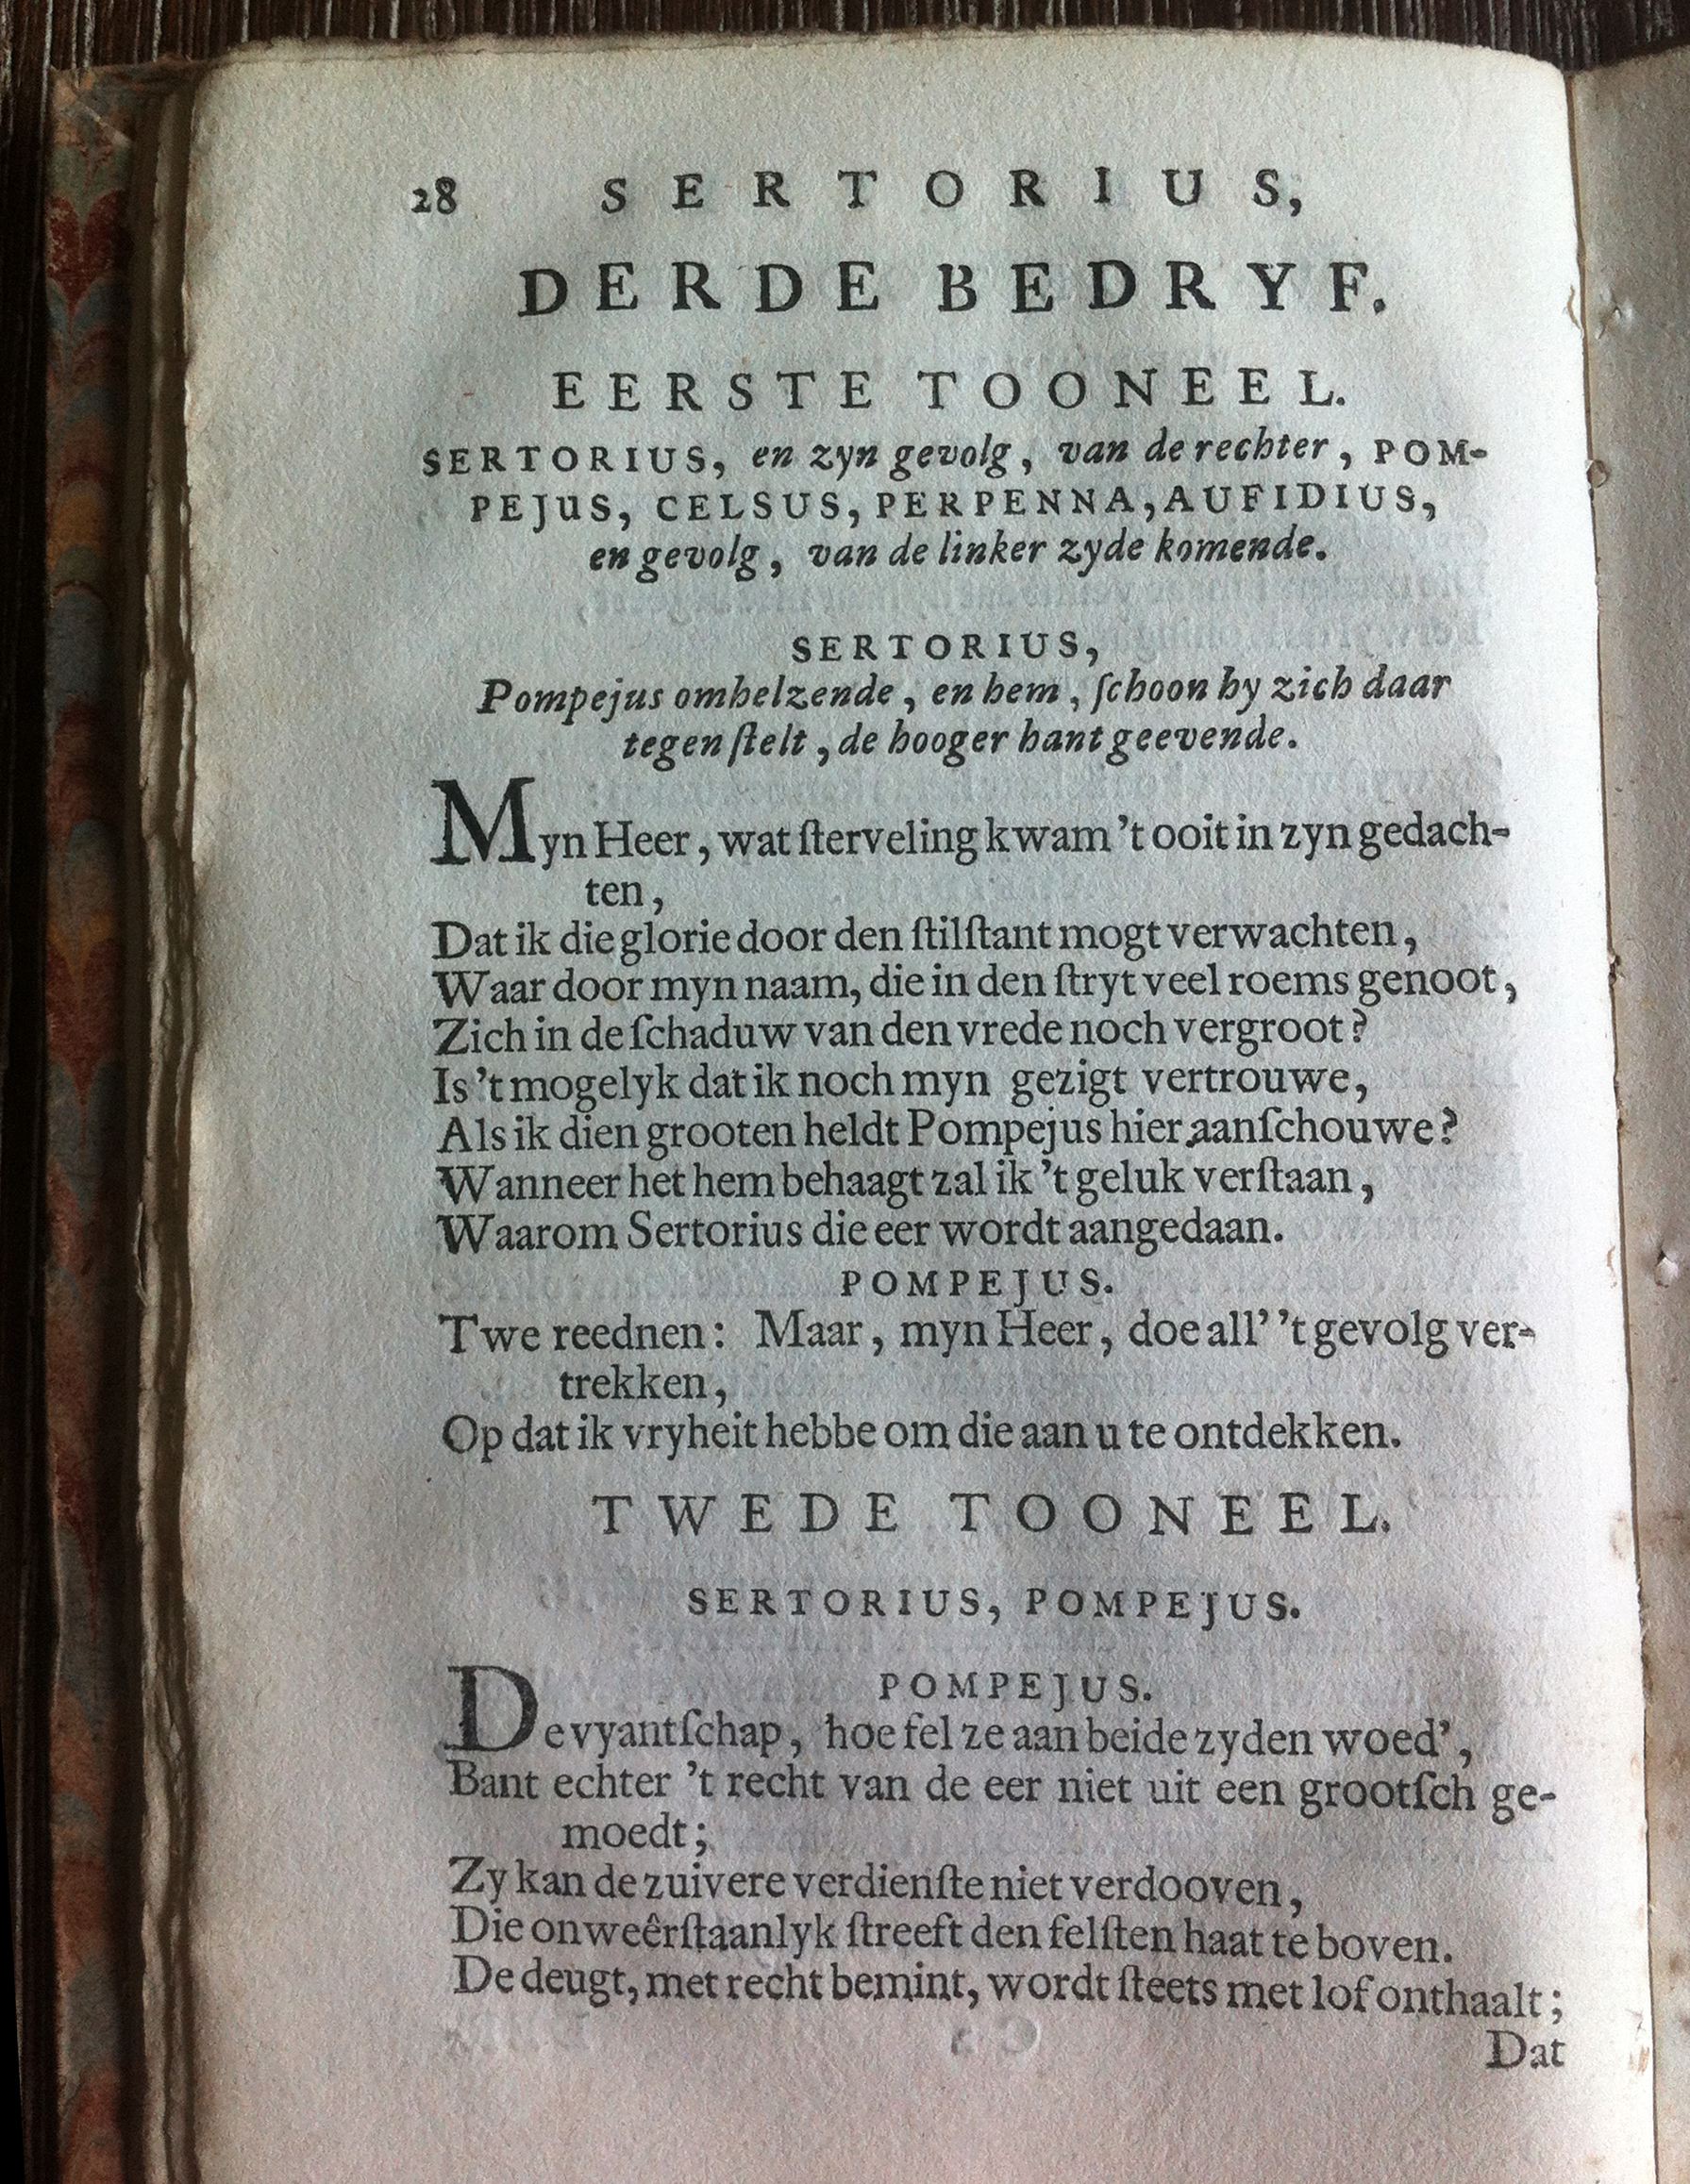 28 SERTORIUS,
DERDE BEDRYF.
EERSTE TOONEEL.
SERTORIUS, en zyn gevolg, van de rechter, POM-
PEJUS, CELSUS, PERPENNA, AUFIDIUS,
en gevolg, van de linker zyde komende.
SERTORIUS,
Pompejus omhelzende, en hem, ſchoon hy zich daar
tegen ſtelt, de hooger hant geevende.
Myn Heer, wat ſterveling kwam 't ooit in zyn gedach-
ten,
Dat ik die glorie door den ſtilſtant mogt verwachten,
Waar door myn naam, die in den ſtryt veel roems genoot,
Zich in de ſchaduw van den vrede noch vergroot?
Is 't mogelyk dat ik noch myn gezigt vertrouwe,
Als ik dien grooten heldt Pompejus hier aanſchouwe?
Wanneer het hem behaagt zal ik 't geluk verſtaan,
Waarom Sertorius die eer wordt aangedaan.
POMPEJUS.
Twe reednen: Maar, myn Heer, doe all' 't gevolg ver-
trekken,
Op dat ik vryheit hebbe om die aan u te ontdekken.
TWEDE TOONEEL.
SERTORIUS, POMPEJUS.
POMPEJUS.
De vyantſchap, hoe fel ze aan beide zyden woed',
Bant echter 't recht van de eer niet uit een grootſch ge-
moedt;
Zy kan de zuivere verdienſte niet verdooven,
Die onweêrſtaanlyk ſtreeft den felſten haat te boven.
De deugt, met recht bemint, wordt ſteets met lof onthaalt;
Dat